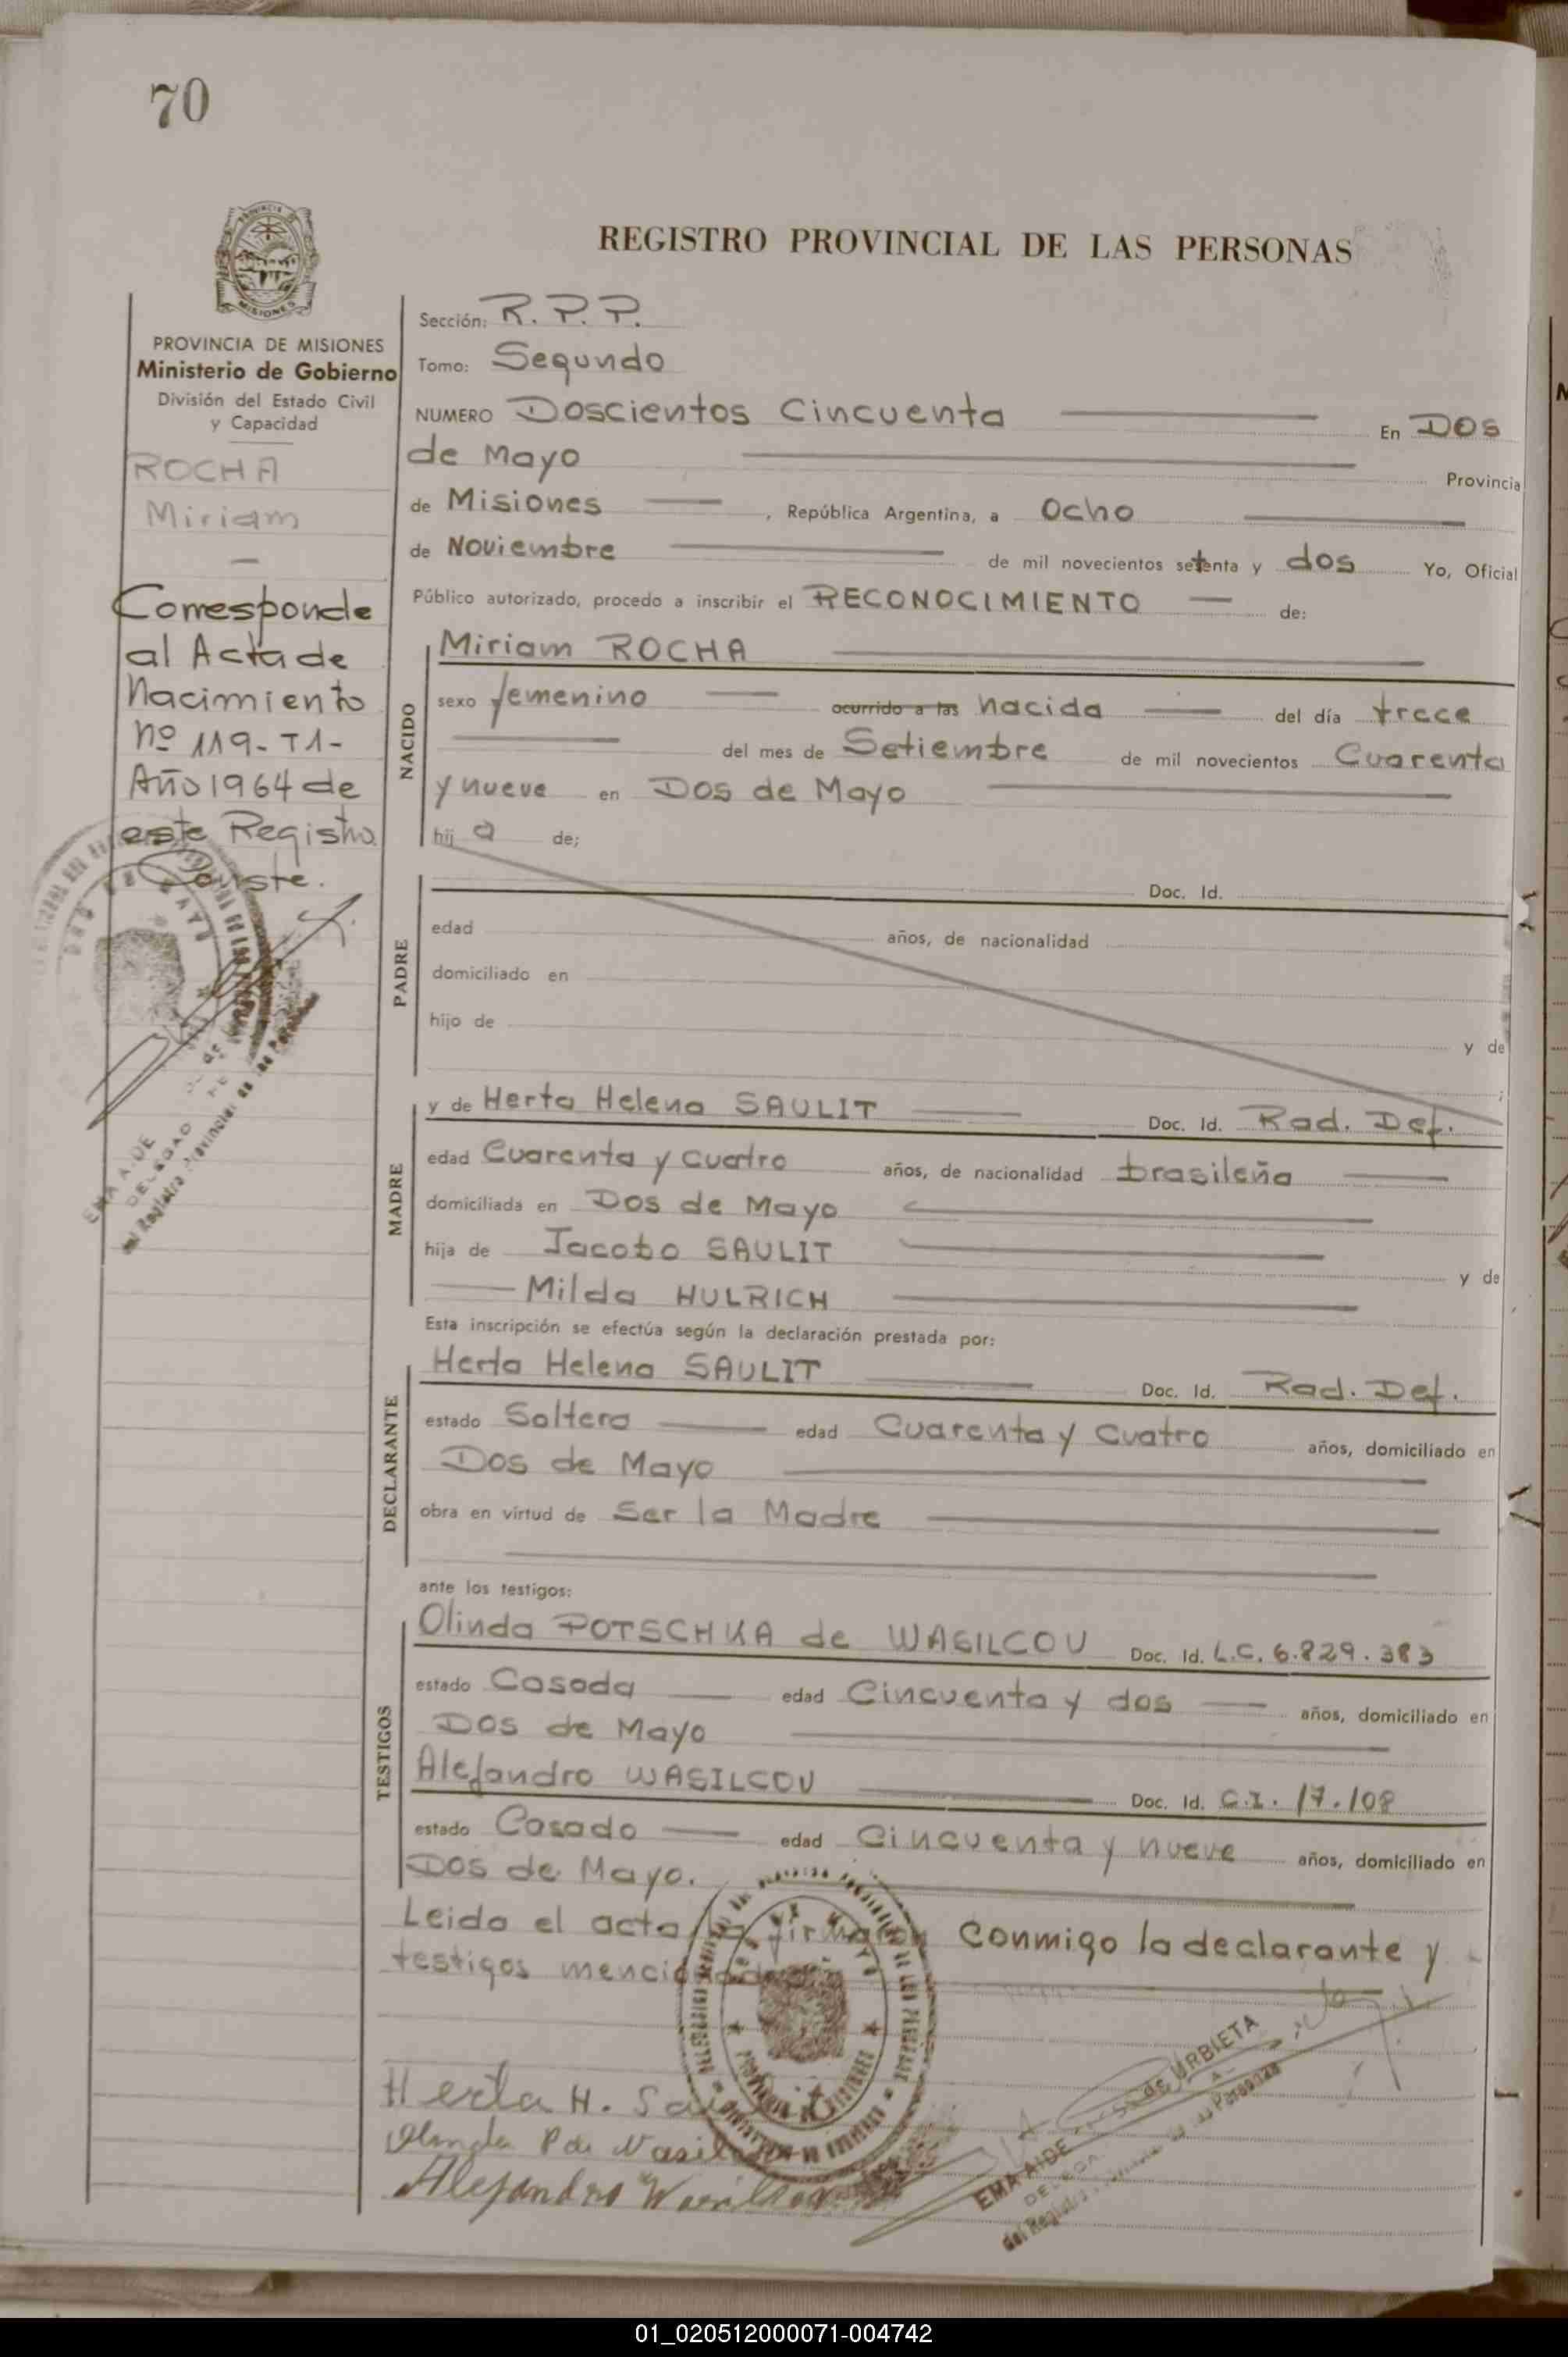 70
REGISTRO PROVINCIAL DE LAS PERSONAS
PROVINCIA DE MISIONES
Ministerio de Gobierno
División del Estado Civil
y Capacidad
ROCHA
Miriam
Corresponde
al Acta de
Nacimiento
nº 119-T1-
Año 1964 de
este Registro
Conste.
Sección: R.P.P.
Tomo: Segundo
NUMERO Doscientos Cincuenta En Dos
de Mayo Provincia
de Misiones , República Argentina, a Ocho
de Noviembre de mil novecientos setenta y dos Yo, Oficial
Público autorizado, procedo a inscribir el RECONOCIMIENTO de:
NACIDO
Miriam ROCHA
sexo femenino ocurrido a las nacida del día trece
del mes de Setiembre de mil novecientos Cuarenta
y nueve en Dos de Mayo
hij a de;
PADRE
Doc. Id.
edad años, de nacionalidad
domiciliado en
hijo de y de
;
MADRE
y de Herta Helena SAULIT Doc. Id. Rad. Def.
edad Cuarenta y cuatro años, de nacionalidad brasileña
domiciliada en Dos de Mayo
hija de Jacobo SAULIT y de
Milda HULRICH
Esta inscripción se efectúa según la declaración prestada por:
DECLARANTE
Herta Helena SAULIT Doc. Id. Rad. Def.
estado Soltera edad Cuarenta y Cuatro años, domiciliado en
Dos de Mayo
obra en virtud de Ser la Madre
ante los testigos:
TESTIGOS
Olinda POTSCHKA de WASILCOU Doc. Id. L.C. 6.829.383
estado Casada edad Cincuenta y dos años, domiciliado en
Dos de Mayo
Alejandro WASILCOU Doc. Id. C.I. 17.108
estado Casado edad Cincuenta y nueve años, domiciliado en
Dos de Mayo.
Leida el acta la firmaron Conmigo la declarante y
testigos mencionados
Herta H. Saulit
Olinda P de
Alejandro
EMA AIDE de URBIETA
del Registro Provincial de las Personas
01_020512000071-004742